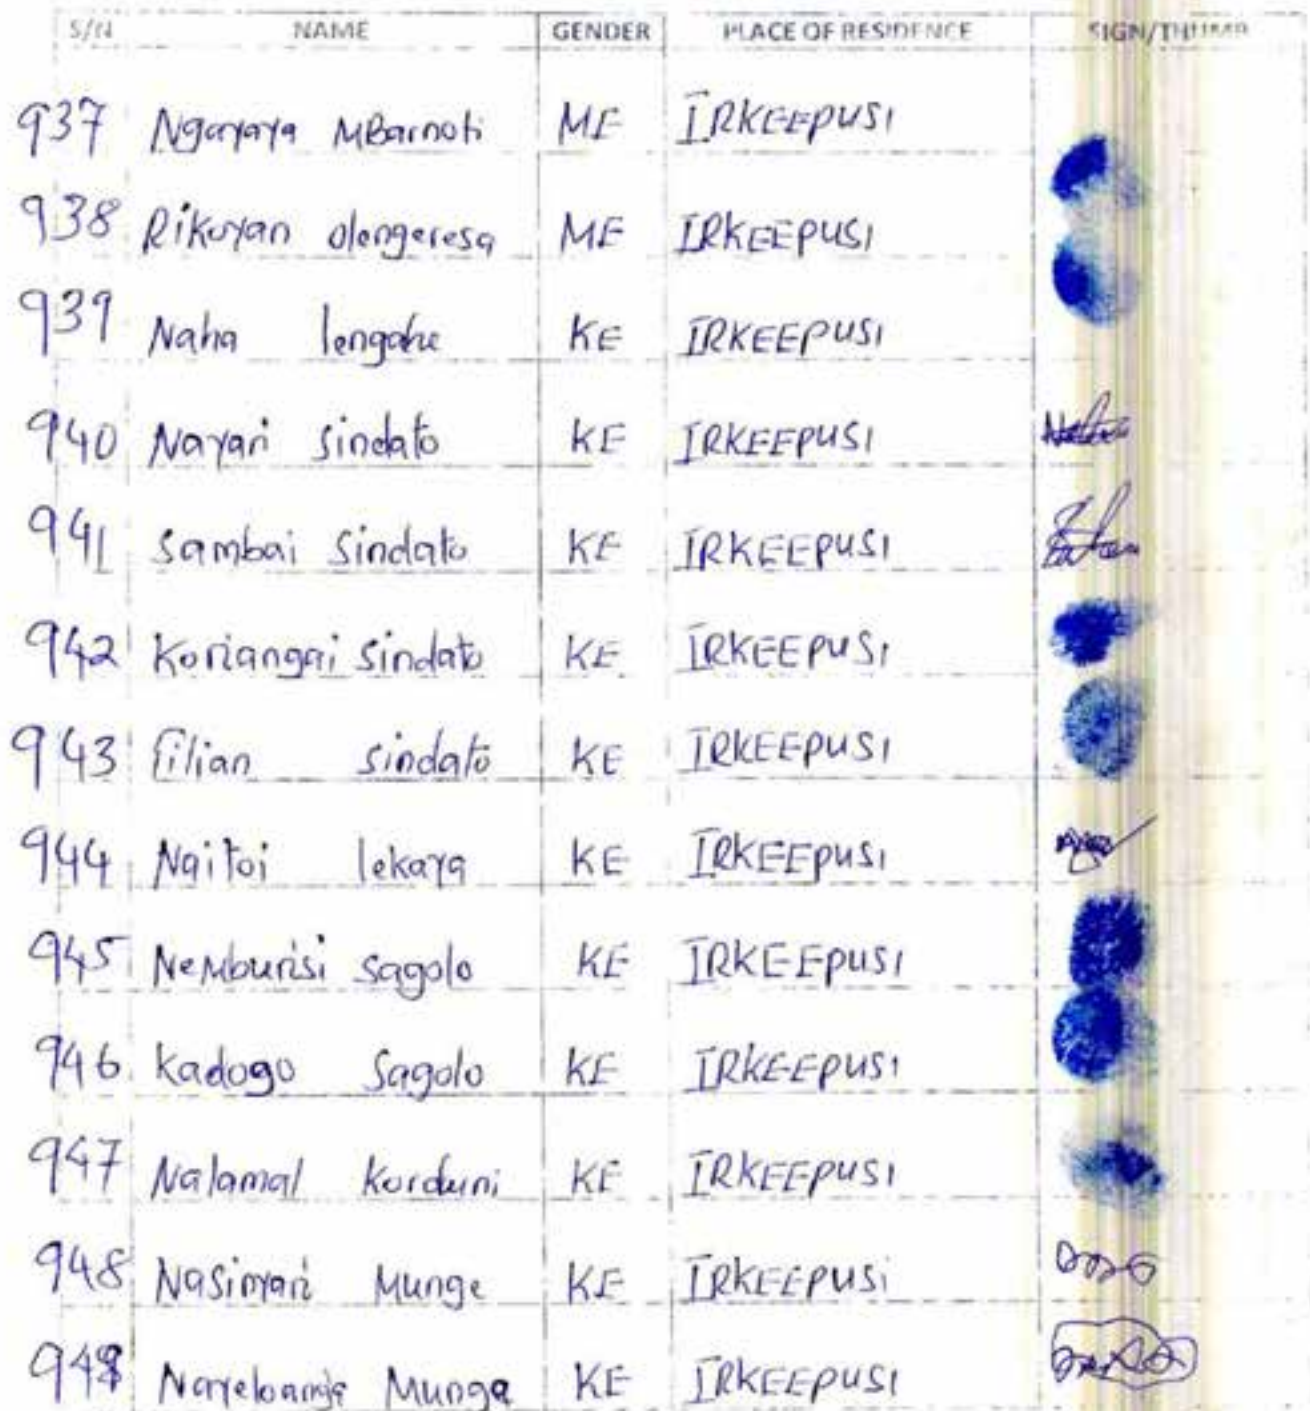 S/N NAME GENDER PLACE OF RESIDENCE SIGN/THUMP
937 Ngayaya MBarnoti ME IRKEEPUSI
938 Rikoyan olengeresa ME IRKEEPUSI
939 Naha lengake KE IRKEEPUSI
940 Nayari Sindato KE IRKEEPUSI
941 Sambai Sindato KE IRKEEPUSI
942 Koriangai Sindato KE IRKEEPUSI
943 lilian sindato KE IRKEEPUSI
944 Naitoi lekaya KE IRKEEPUSI
945 NeMburisi sagolo KE IRKEEPUSI
946 Kadogo Sagolo KE IRKEEPUSI
947 Nalamal Korduni KE IRKEEPUSI
948 Nasinyari Munge KE IRKEEPUSi
Munge KE IRKEEPUSI